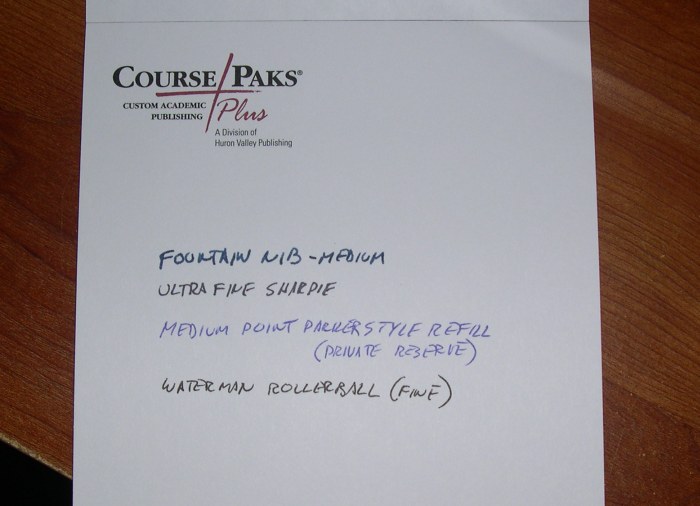 COURSE PAKS®
CUSTOM ACADEMIC PUBLISHING
Plus
A Division of
Huron Valley Publishing
FOUNTAIN NIB - MEDIUM
ULTRA FINE SHARPIE
MEDIUM POINT PARKER STYLE REFILL
(PRIVATE RESERVE)
WATERMAN ROLLERBALL (FINE)